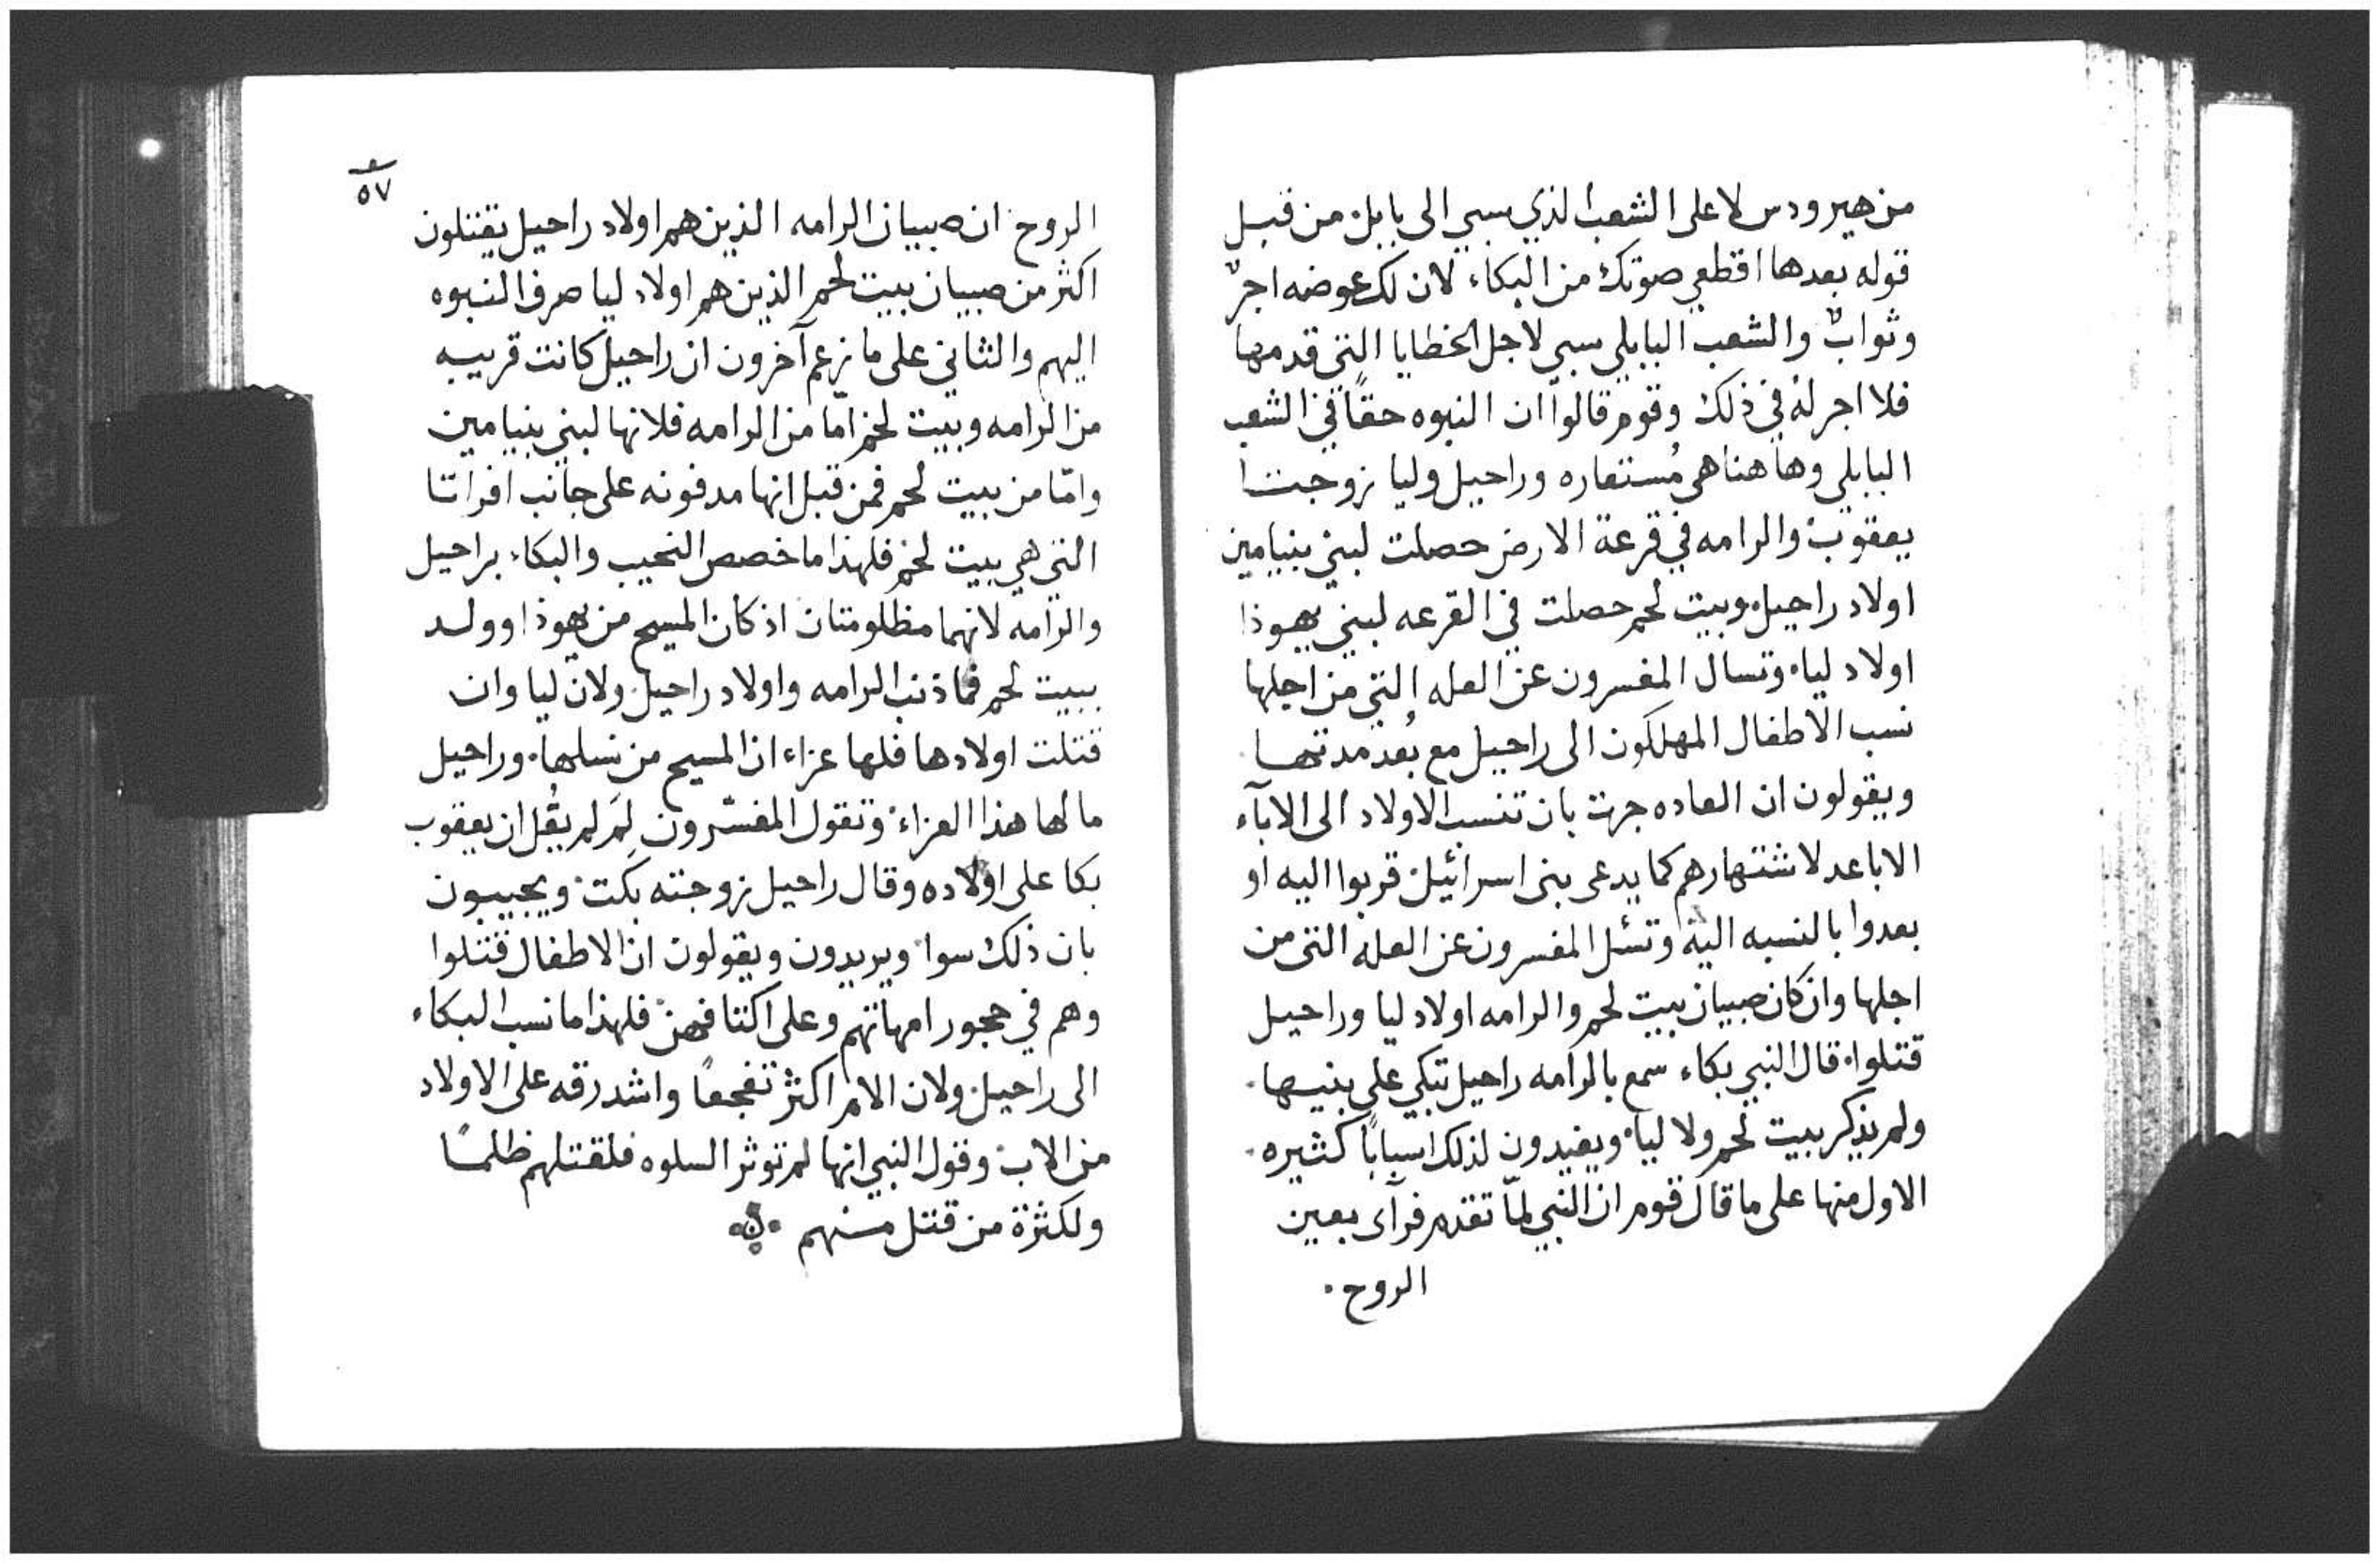 من هيرودس لا على الشعب الذي سبي الى بابل من قبل
قوله بعدها اقطعي صوتك من البكاء لان لك عوضه اجرٌ
وثوابٌ والشعب البابلي سبي لاجل الخطايا التي قدمها
فلا اجر له في ذلك وقوم قالوا ان النبوه حقًا في الشعب
البابلي وها هنا هي مُستعاره وراحيل وليا زوجتا
يعقوب والرامه في قرعة الارض حصلت لبني بنيامين
اولاد راحيل وبيت لحم حصلت في القرعه لبني يهوذا
اولاد ليا وتسال المفسرون عن العله التي من اجلها
نسب الاطفال المهلكون الى راحيل مع بُعد مدتها
ويقولون ان العاده جرت بان تنسب الاولاد الى الابآء
الاباعد لاشتهارهم كما يدعى بنى اسرائيل قربوا اليه او
بعدوا بالنسبه اليه وتسئل المفسرون عن العله التى من
اجلها وان كان صبيان بيت لحم والرامه اولاد ليا وراحيل
قتلوا قال النبي بكاء سمع بالرامه راحيل تبكي على بنيها
ولم يذكر بيت لحم ولا ليا ويفيدون لذلك اسبابًا كثيره
الاول منها على ما قال قوم ان النبي لمّا تقدم فرآى بعين
الروح
٥٧
الروح ان صبيان الرامه الذين هم اولاد راحيل يقتلون
اكثر من صبيان بيت لحم الذين هم اولاد ليا صرف النبوه
اليهم والثاني على ما زعم آخرون ان راحيل كانت قريبه
من الرامه وبيت لحم امّا من الرامه فلانها لبني بنيامين
وامّا من بيت لحم فمن قبل انها مدفونه على جانب افراتا
التي هي بيت لحم فلهذا ما خصص النحيب والبكاء براحيل
والرامه لانهما مظلومتان اذ كان المسيح من يهوذا وولد
ببيت لحم فما ذنب الرامه واولاد راحيل ولان ليا وان
قتلت اولادها فلها عزاء ان المسيح من نسلها وراحيل
ما لها هذا العزاء وتقول المفسّرون لمَ لم يقُل ان يعقوب
بكا على اولاده وقال راحيل زوجته بكت ويجيبون
بان ذلك سوا ويريدون ويقولون ان الاطفال قتلوا
وهم في حجور امهاتهم وعلى اكتافهن فلهذا ما نسب البكاء
الى راحيل ولان الام اكثر تفجعًا واشد رقه على الاولاد
من الاب وقول النبي انها لم توثر السلوه فلقتلهم ظلمًا
ولكثرة من قتل منهم